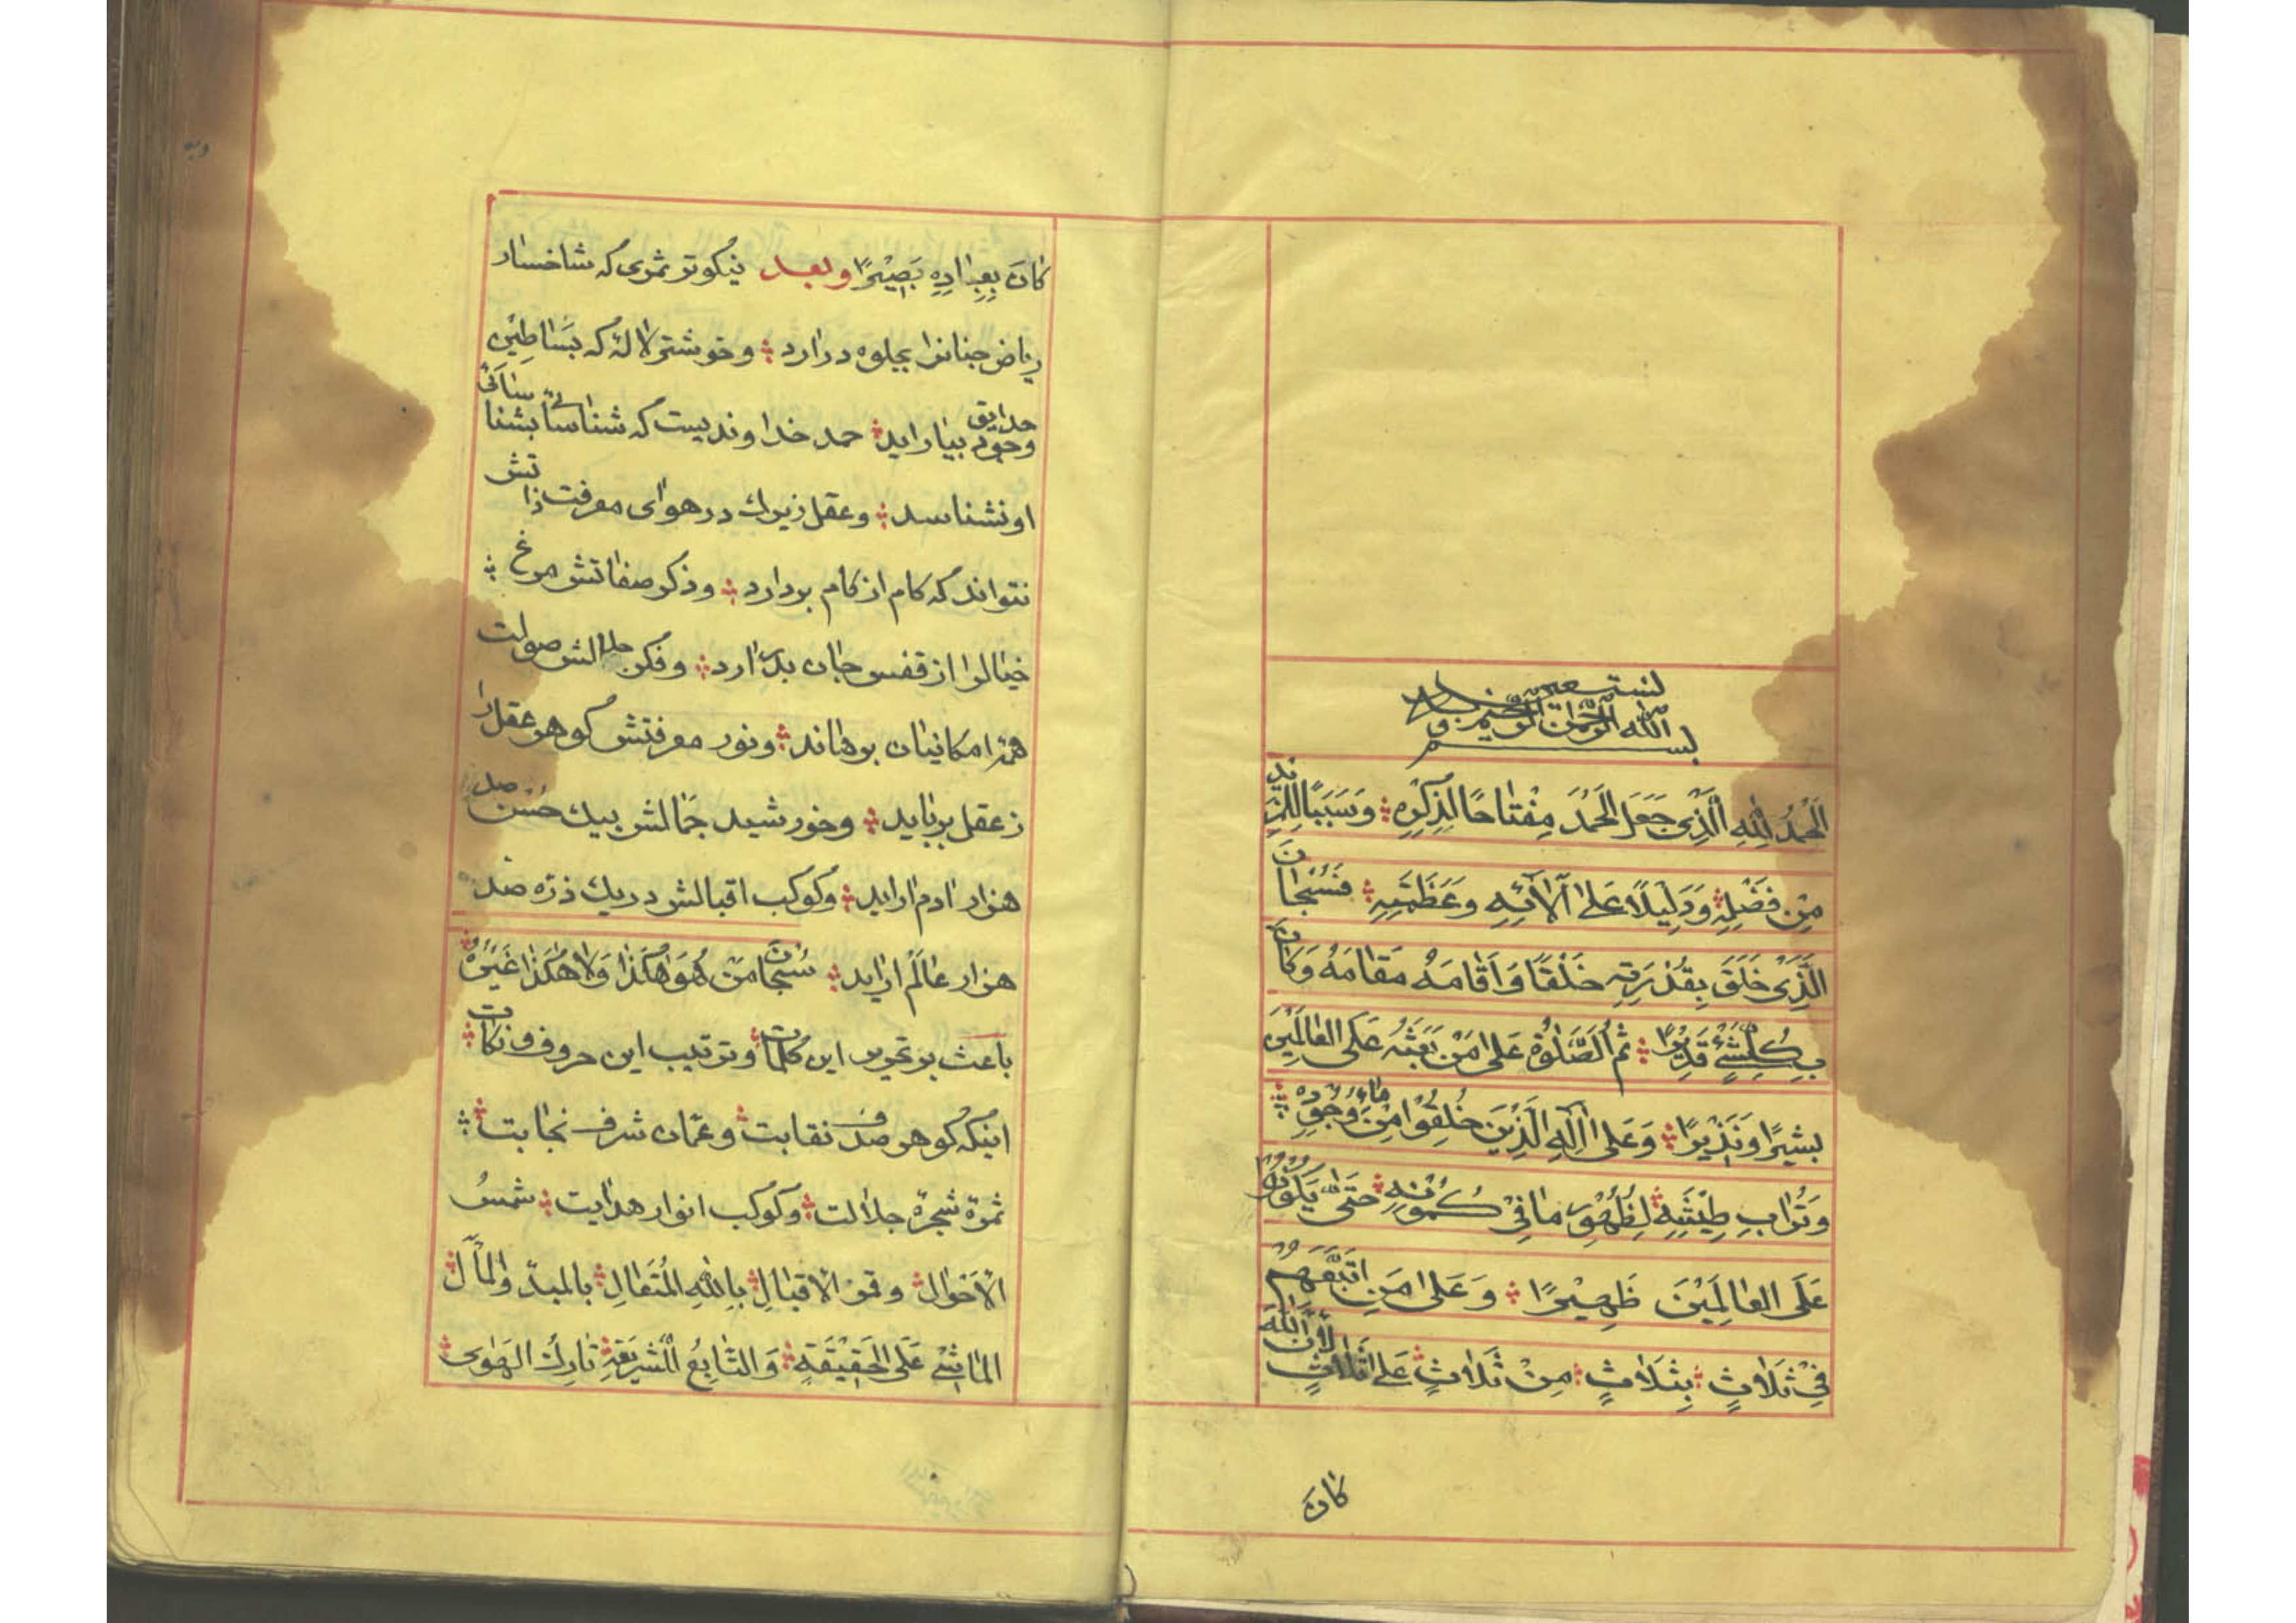 بسم الله الرحمن الرحيم و به نستعين
اَلْحَمْدُ لِلّٰهِ الَّذِى جَعَلَ الْحَمْدَ مِفْتَاحًا لِذِكْرِهِ وَسَبَبًا لِلْمَزِيدِ
مِنْ فَضْلِهِ وَدَلِيْلًا عَلىٰ آلَائِهِ وَعَظَمَتِهِ فَسُبْحَانَ
الَّذِىْ خَلَقَ بِقُدْرَتِهِ خَلْقًا وَاَقَامَهُ مَقَامَهُ وَكَانَ
بِكُلِّ شَىْءٍ قَدِيْرًا ثُمَّ الصَّلٰوةُ عَلىٰ مَنْ بَعَثَهُ عَلَى الْعَالَمِيْنَ
بَشِيْرًا وَنَذِيْرًا وَعَلىٰ اٰلِهِ الَّذِيْنَ خُلِقُوْا مِنْ مَاءِ وُجُوْدِهِ
وَتُرَابِ طِيْنَتِهِ لِظُهُوْرِ مَا فِىْ كُمُوْنِهِ حَتّٰى يَكُوْنُوْا
عَلَى الْعَالَمِيْنَ ظَهِيْرًا وَعَلىٰ مَنِ اتَّبَعَهُمْ
فِىْ ثَلَاثٍ بِثَلَاثٍ مِنْ ثَلَاثٍ عَلىٰ ثَلَاثٍ لِاَنَّ اللّٰهَ
كَانَ
كَانَ بِعِبَادِهِ بَصِيْرًا وبعد نیکوتر ثمری که شاخسار
ریاض جنانرا بجلوه درارد و خوشتر لاله که بساطین
حدایق وجود بیاراید حمد خداوندیست که شناسائی شناسا
او نشناسد و عقل زیرك در هوای معرفت ذاتش
نتواند که کام از کام بردارد و ذکر صفاتش مرغ
خیالرا از قفس جان بدرارد و فکر جلالش صولت
همه امکانیان برهاند و نور معرفتش کوهر عقل را
ز عقل برباید و خورشید جمالش بیك حسن صد
هزار ادم اراید و کوکب اقبالش در یك ذره صد
هزار عالم اراید سُبْحَانَ مَنْ هُوَ هٰكَذَا وَلَا هٰكَذَا غَيْرُهُ
باعث بر تحریر این کلمات و ترتیب این حروف و نکات
اینکه کوهر صدف نقابت و عمان شرف نجابت
ثمرۀ شجرۀ جلالت و کوکب انوار هدایت شمسُ
الْاَحْوَالِ و قمر الْاقبالِ بِاللّٰهِ الْمُتَعَالِ بالمبدّ والمآل
الماشى عَلَى الْحَقِيْقَةِ وَالتَّابِعُ لِلشَّرِيْعَةِ تارك الهَوٰى